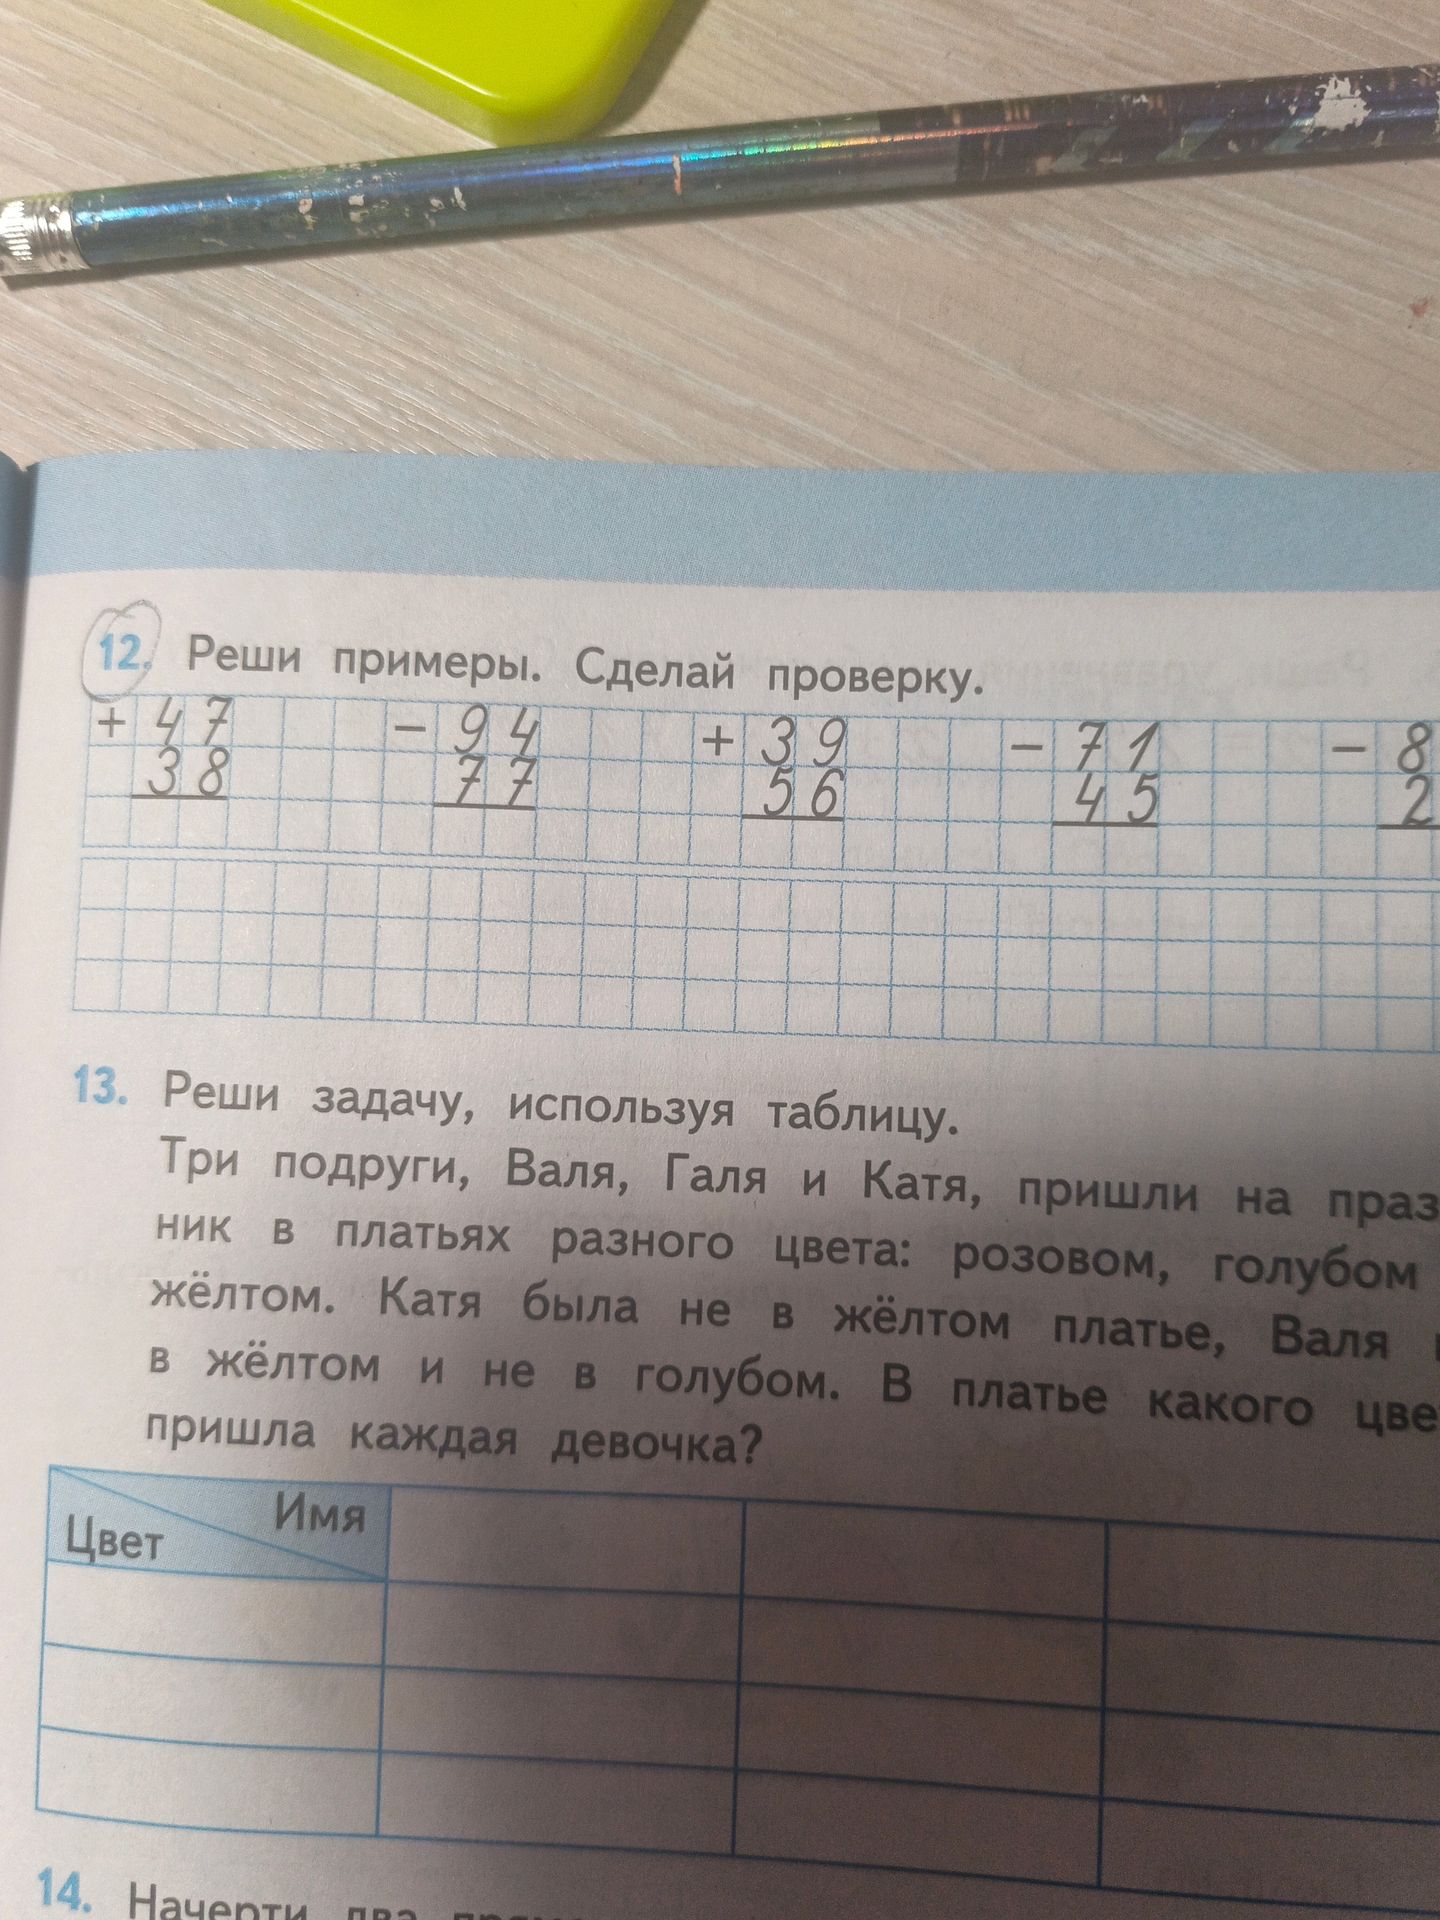 12. Реши примеры. Сделай проверку.
+ 47 − 94 + 39 − 71 − 8
38 77 56 45 2
13. Реши задачу, используя таблицу.
Три подруги, Валя, Галя и Катя, пришли на праз
ник в платьях разного цвета: розовом, голубом
жёлтом. Катя была не в жёлтом платье, Валя
в жёлтом и не в голубом. В платье какого цве
пришла каждая девочка?
Имя
Цвет
14. Начерти два